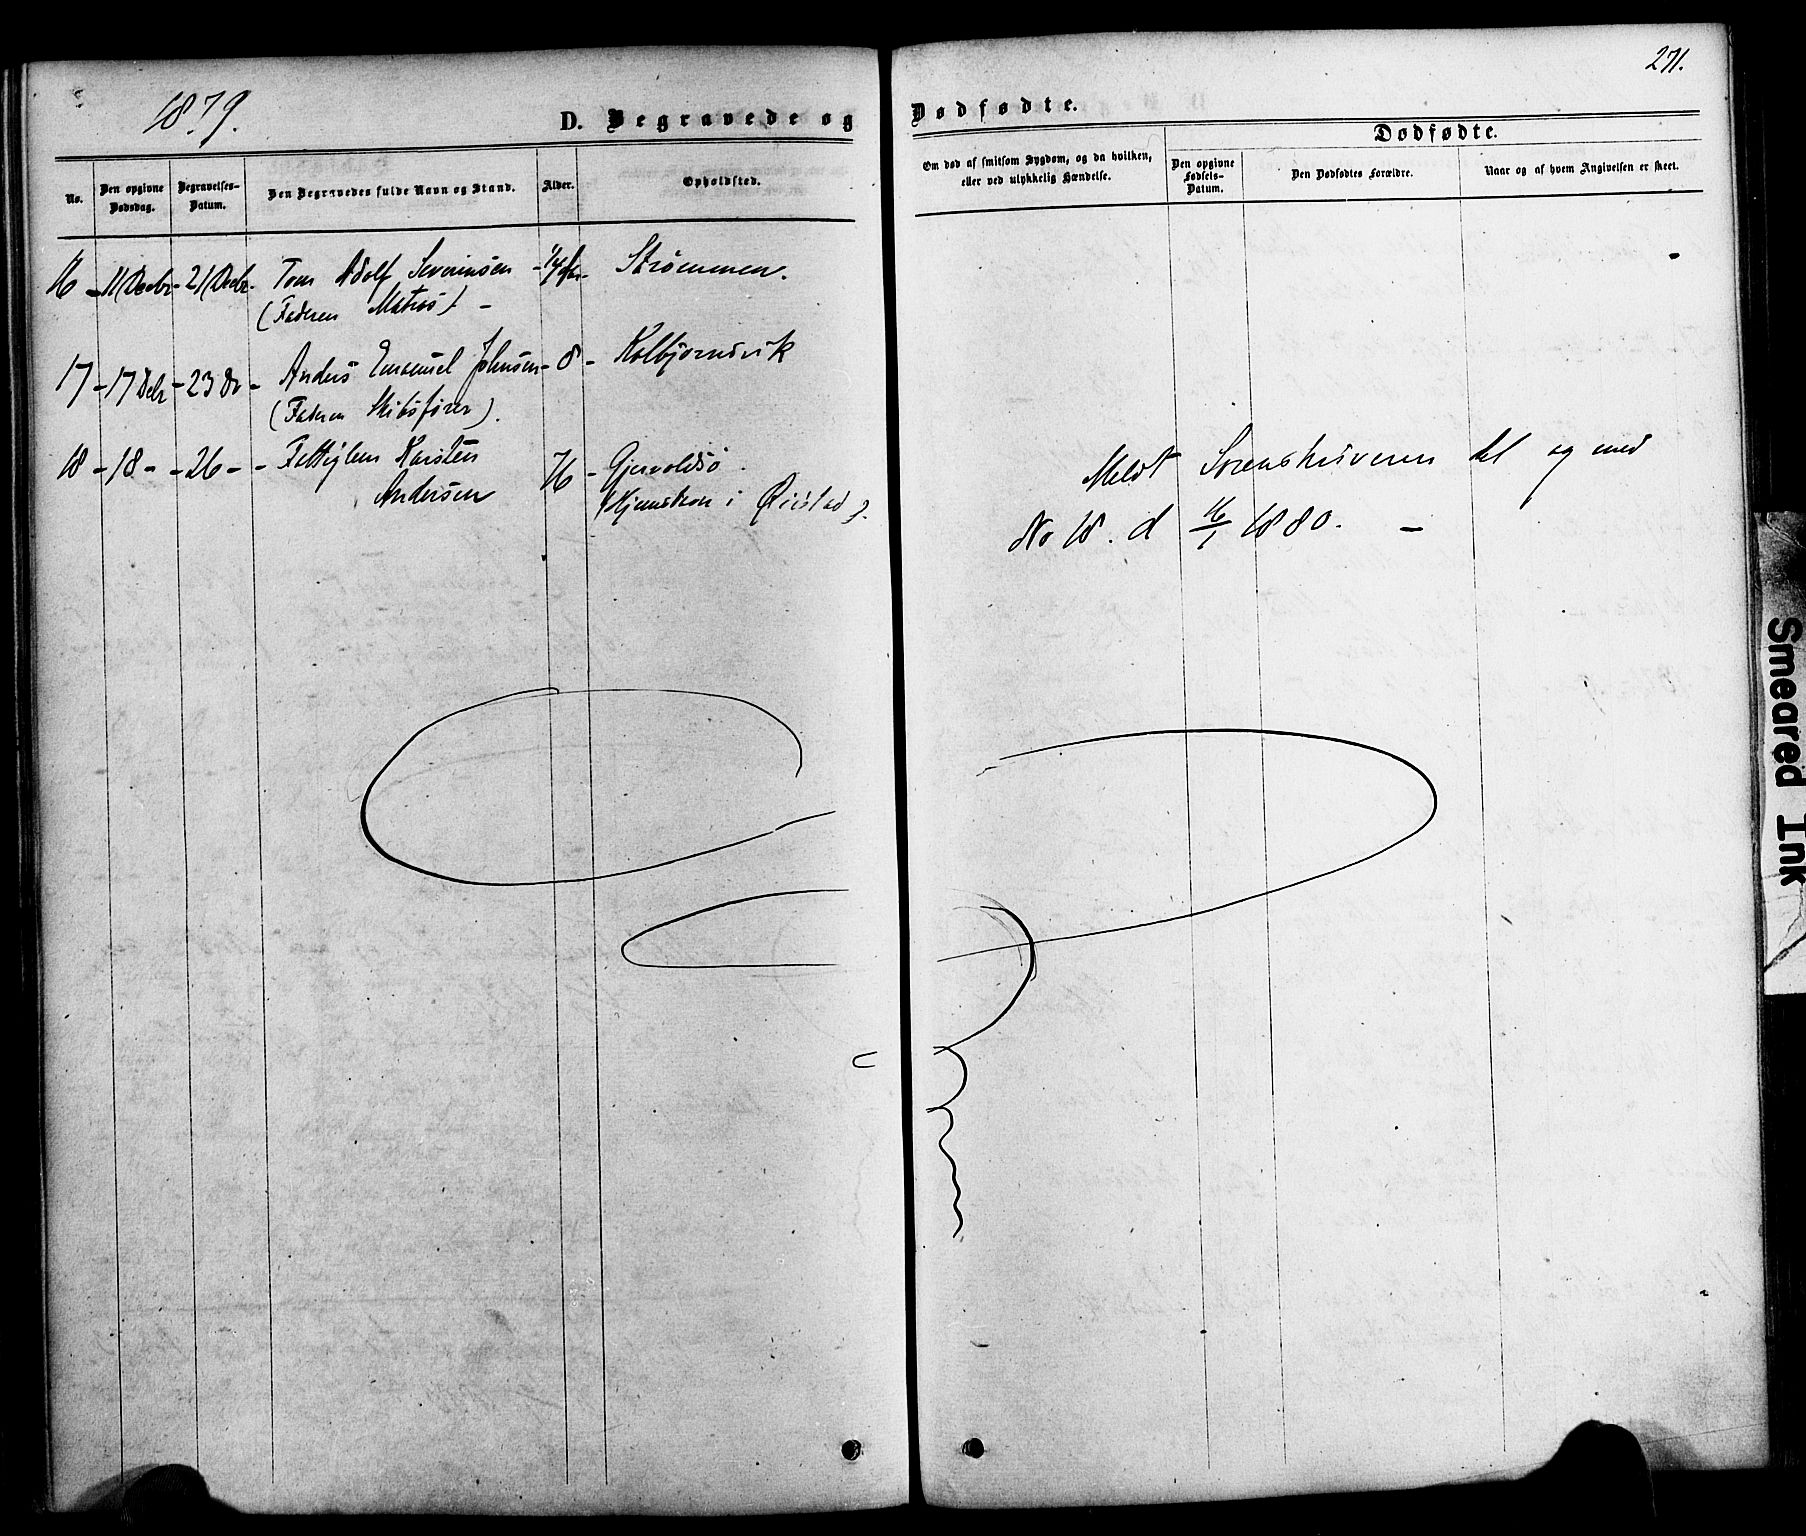 271.
1879.
D. Begravede og Dødfødte.
No.
Den opgivne Dødsdag.
Begravelses-Datum.
Den Begravedes fulde Navn og Stand.
Alder.
Opholdsted.
Om død af smitsom Sygdom, og da hvilken, eller ved ulykkelig Hændelse.
Dødfødte.
Den opgivne Fødsels-Datum.
Den Dødfødtes Forældre.
Naar og af hvem Angivelsen er skeet.
16 - 11 Decbr - 21 Decbr - Tom Adolf Severinsen - Strømmen.
(Faderen Matros) -
17 - 17 Debr - 23 Do - Anders Emanuel Johnsen - 8 - Kolbjørnsvik
(Faderen Skibsfører).
18 - 18 - - 26 - - Karsten 76 - Gjervoldsø.
Andersen (Hjemsteds i Øiestad).
Meldt Sorenskriveren til og med
No 18. d 16/1 1880. -
Smeared Ink